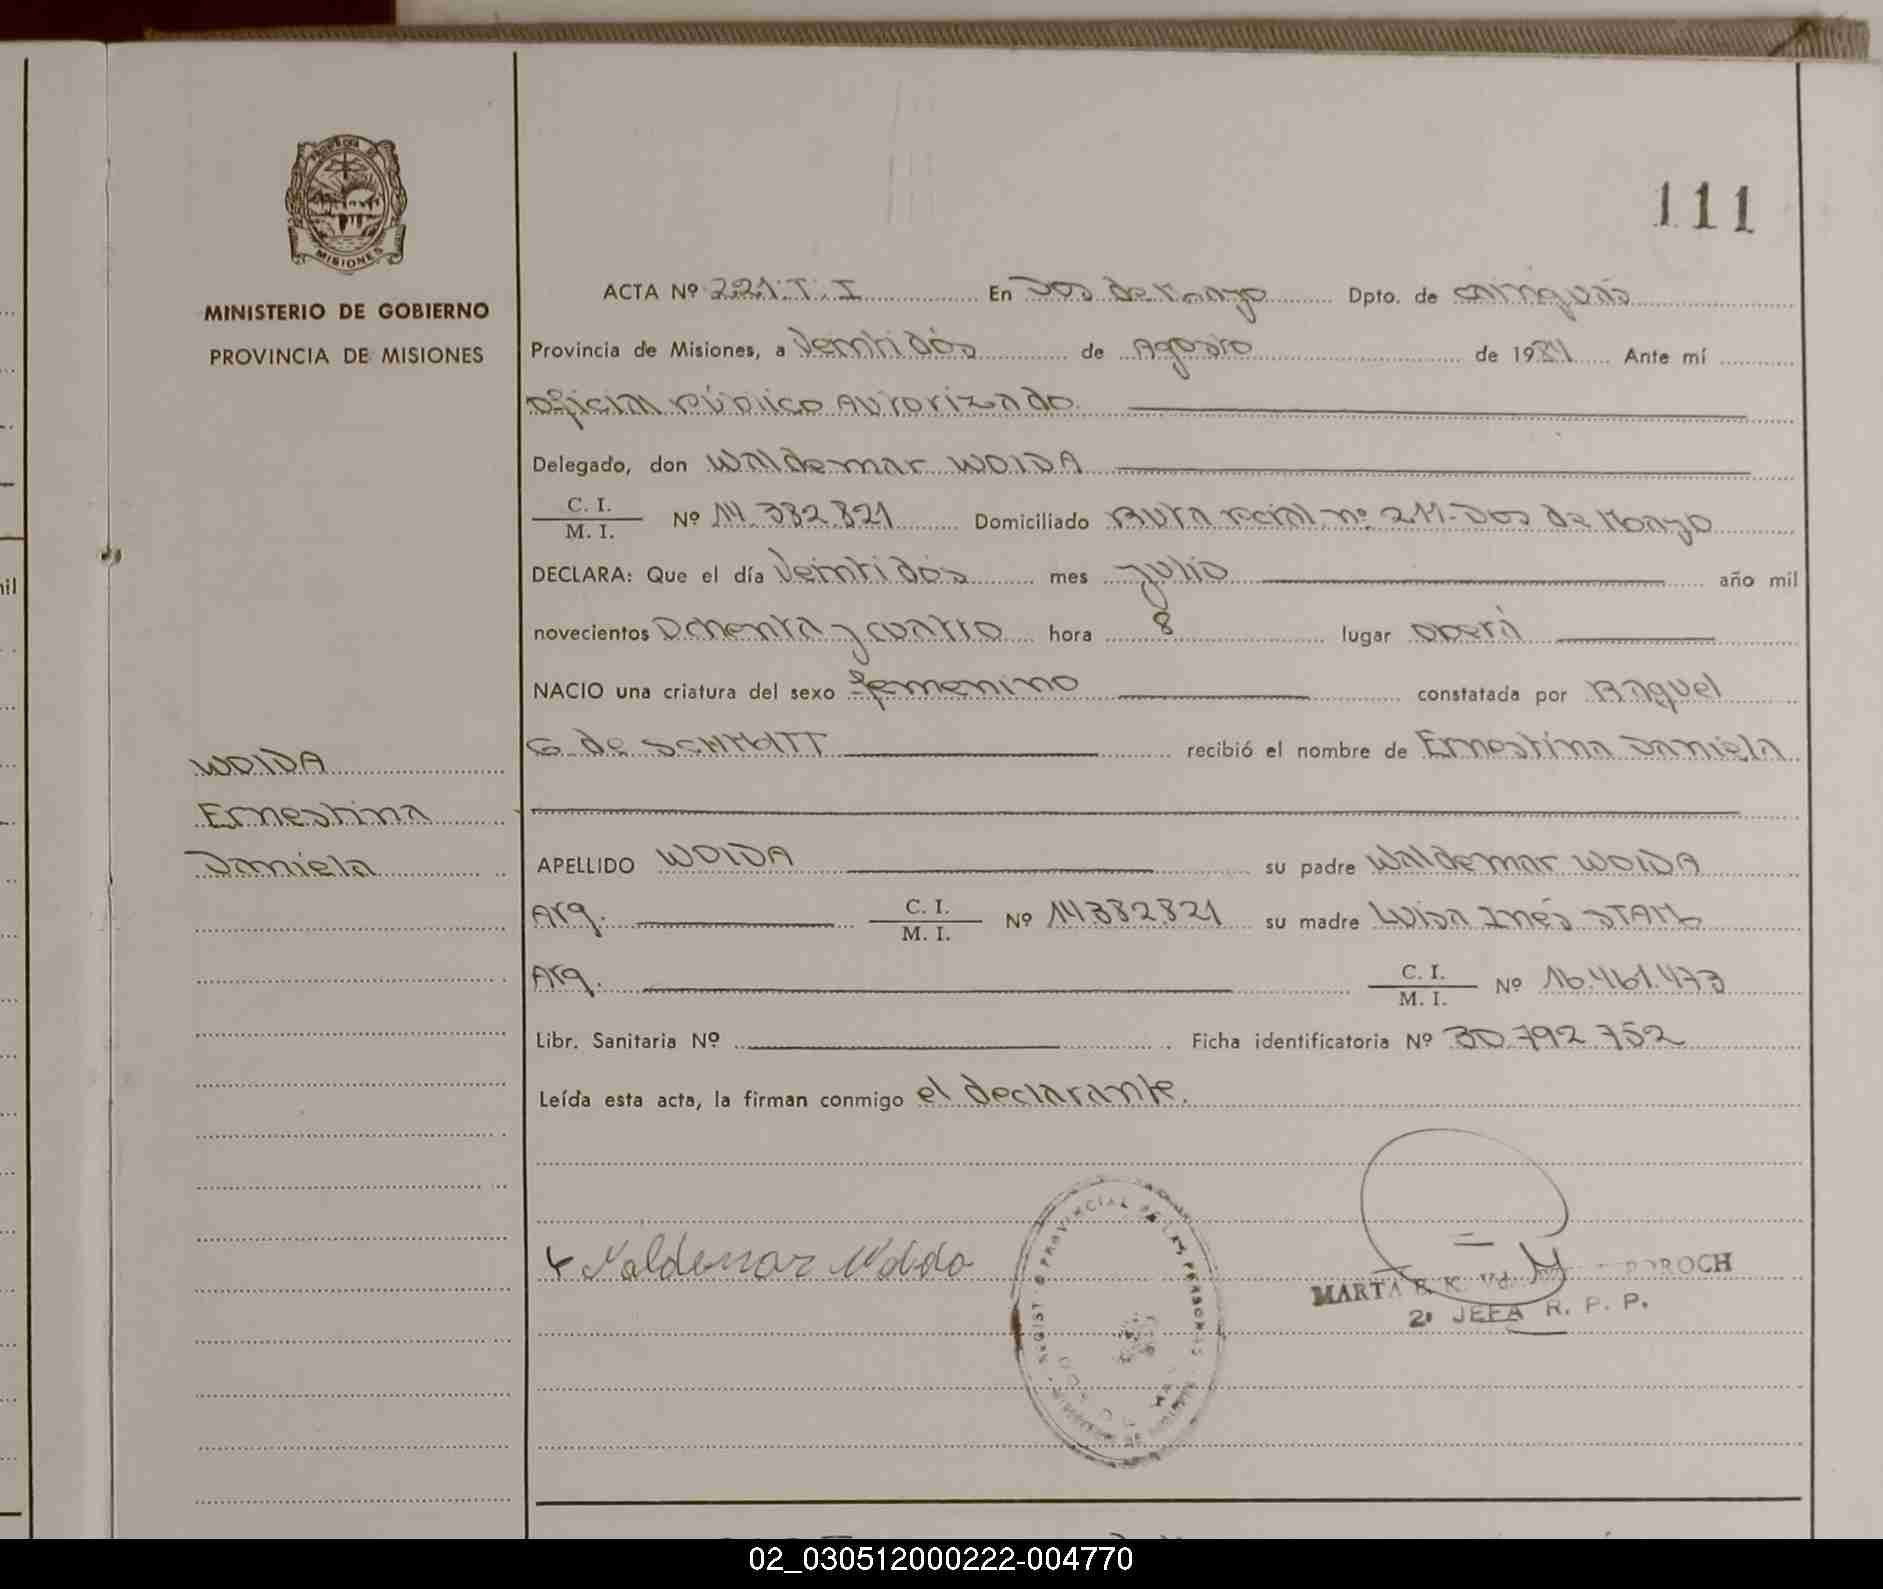 111
PROVINCIA DE
MISIONES
MINISTERIO DE GOBIERNO
PROVINCIA DE MISIONES
WOIDA
Ernestina
Daniela
ACTA Nº 221.T.I En Dos de Mayo Dpto. de Cainguás
Provincia de Misiones, a Veintidós de Agosto de 1984 Ante mí
Oficial Público Autorizado.
Delegado, don Waldemar WOIDA
C. I.
M. I. Nº 14.382.821 Domiciliado Ruta Pcial. nº 211-Dos de Mayo
DECLARA: Que el día Veintidós mes Julio año mil
novecientos Ochenta y cuatro hora 8 lugar Oberá
NACIO una criatura del sexo femenino constatada por Raquel
G. de SCHMITT recibió el nombre de Ernestina Daniela
APELLIDO WOIDA su padre Waldemar WOIDA
Arg. C. I.
M. I. Nº 14382821 su madre Luisa Inés
Arg. C. I.
M. I. Nº 16.461.473
Libr. Sanitaria Nº Ficha identificatoria Nº 30.792.752
Leída esta acta, la firman conmigo el declarante.
Waldemar Woida
PROVINCIAL DE LAS PERSONAS
MARTA E. K. Vd. POROCH
2ª JEFA R. P. P.
mil
02_030512000222-004770